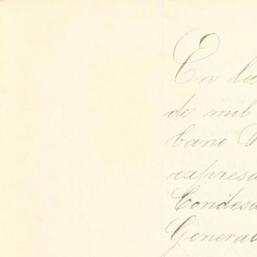 En la
de mil
bano
expresa
Condesa
General